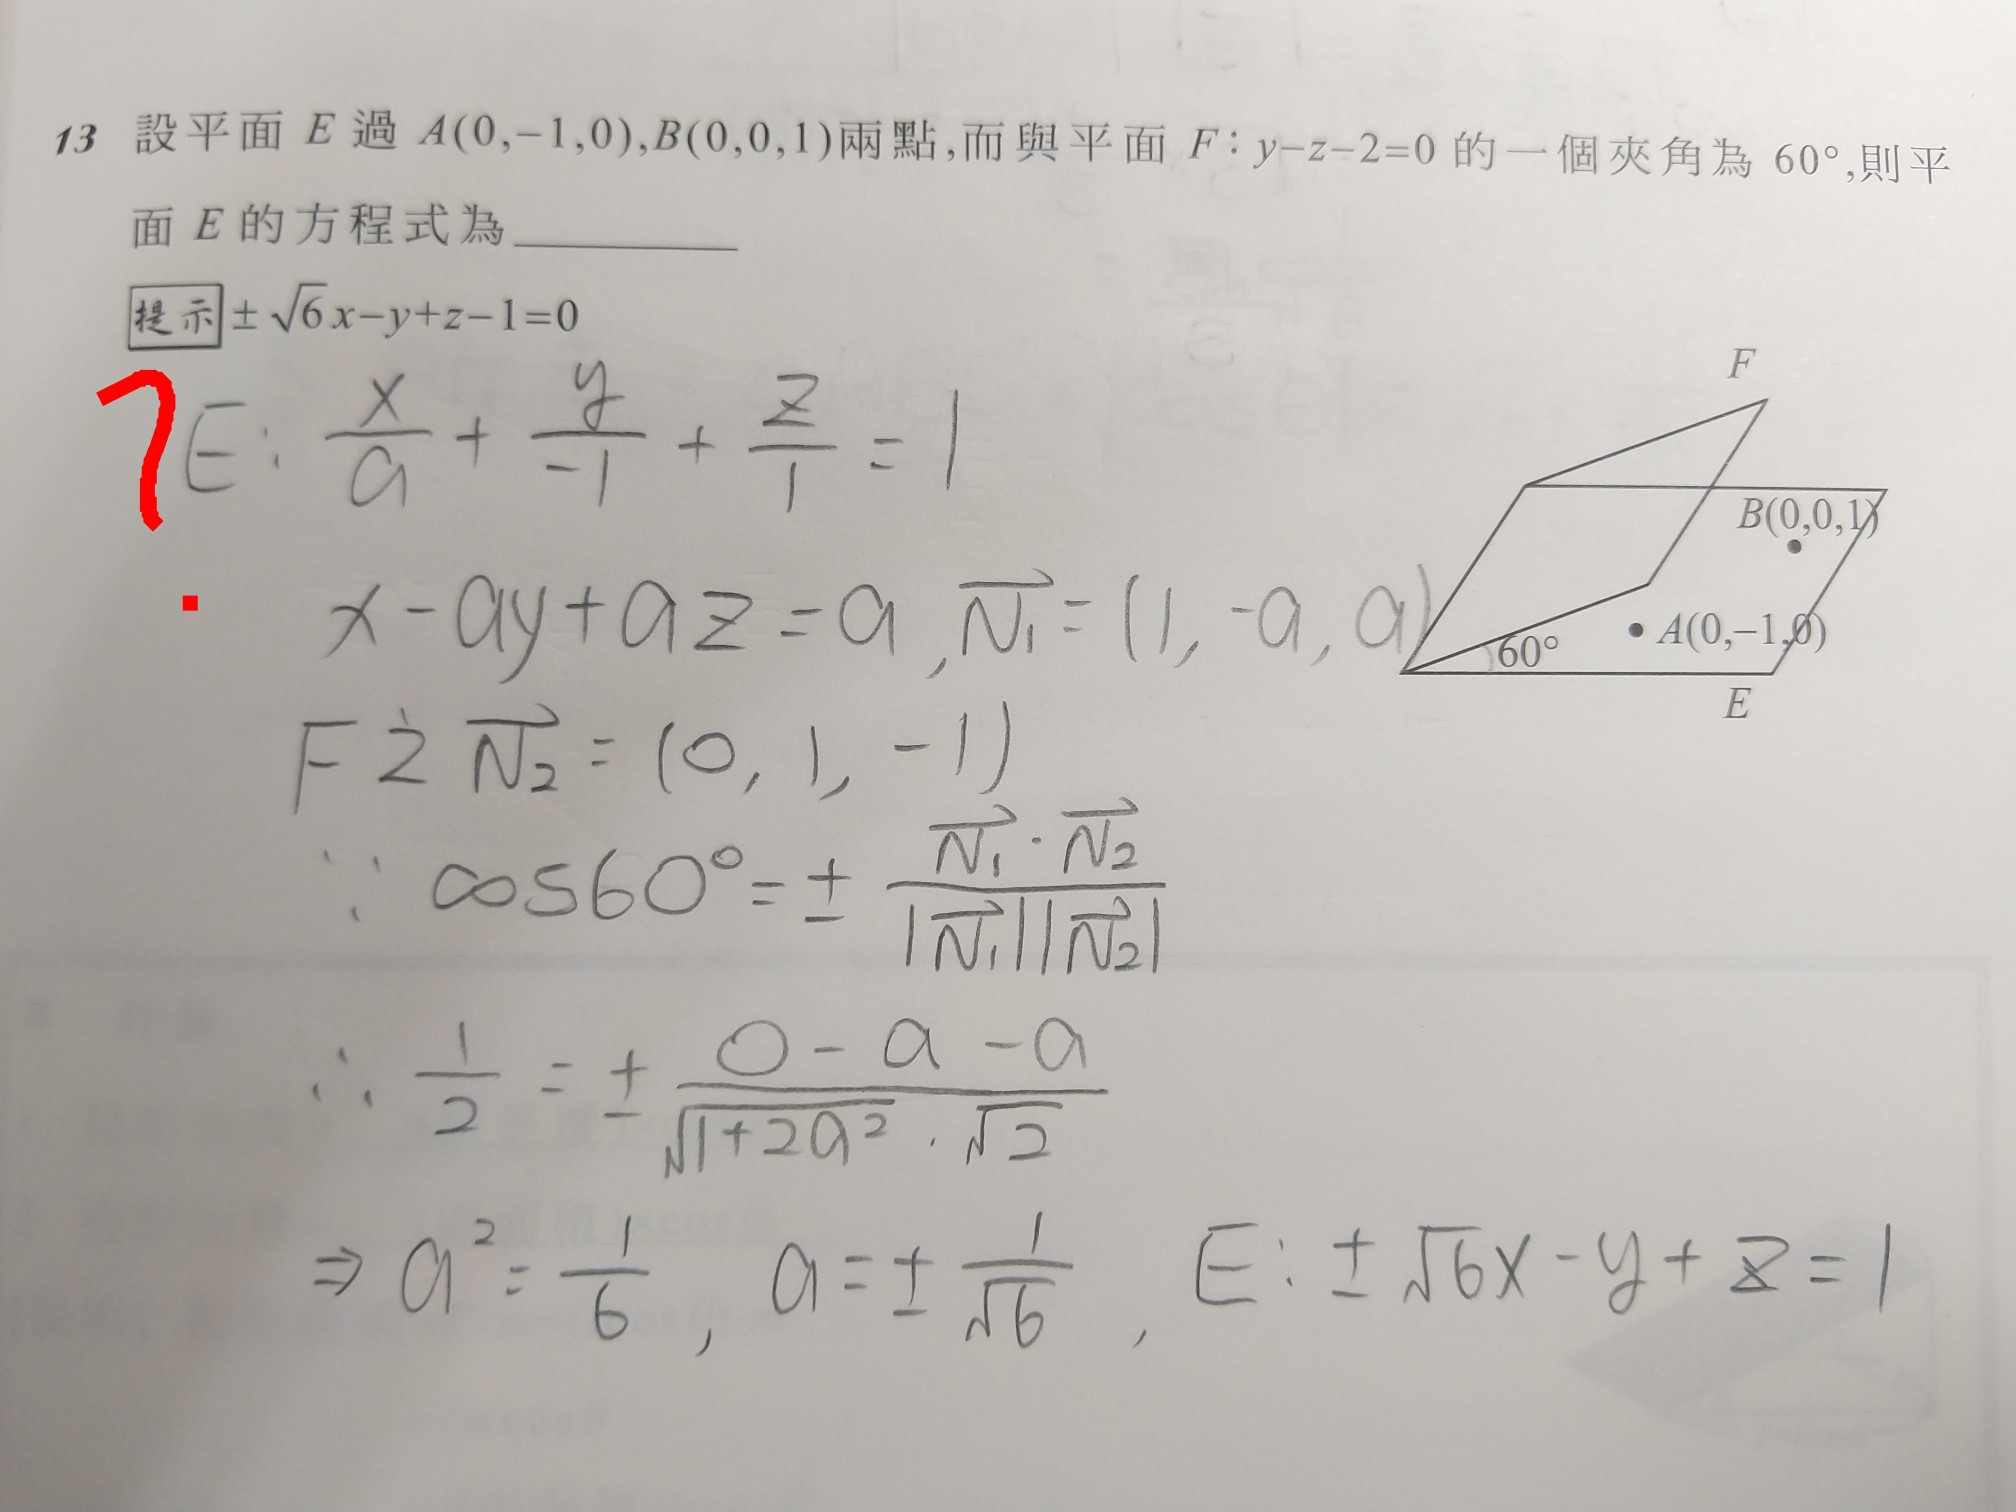 13 設平面 E 過 A(0,−1,0),B(0,0,1)兩點,而與平面 F:y−z−2=0 的一個夾角為 60°,則平
面 E 的方程式為
提示 ±√6x−y+z−1=0
?
E: x/a + y/-1 + z/1 = 1
x - ay + az = a, N₁⃗ = (1, -a, a)
F之 N₂⃗ = (0, 1, -1)
∵ cos60° = ± N₁⃗·N₂⃗ / |N₁⃗||N₂⃗|
∴ 1/2 = ± 0-a-a / √(1+2a²)·√2
⇒ a² = 1/6, a = ± 1/√6, E: ±√6x - y + z = 1
F
B(0,0,1)
A(0,−1,0)
60°
E